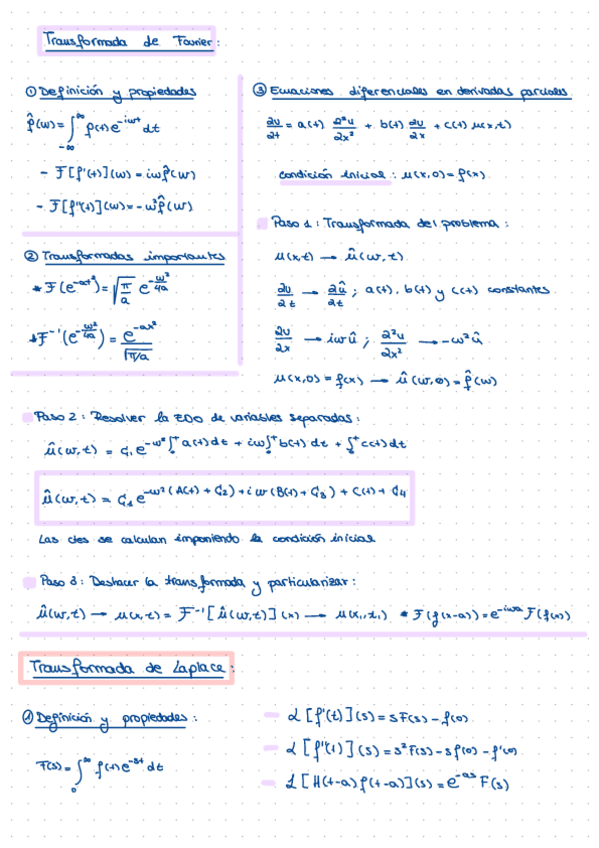 Transformada de Fourier:
① Definición y propiedades
f̂(w) = ∫_{-∞}^{∞} f(t) e^{-iwt} dt
- F[f'(t)](w) = iw f̂(w)
- F[f''(t)](w) = -w² f̂(w)
② Transformadas importantes
* F(e^{-at²}) = √(π/a) e^{-w²/4a}
* F⁻¹(e^{-w²/4a}) = e^{-ax²}/√(π/a)
③ Ecuaciones diferenciales en derivadas parciales
∂u/∂t = a(t) ∂²u/∂x² + b(t) ∂u/∂x + c(t) u(x,t)
condición inicial : u(x,0) = f(x)
Paso 1 : Transformada del problema :
u(x,t) → û(w,t)
∂u/∂t → ∂û/∂t ; a(t), b(t) y c(t) constantes
∂u/∂x → iwû ; ∂²u/∂x² → -w²û
u(x,0) = f(x) → û(w,0) = f̂(w)
Paso 2 : Resolver la EDO de variables separadas :
û(w,t) = C₁ e^{-w² ∫₀ᵗ a(t) dt + iw ∫₀ᵗ b(t) dt + ∫₀ᵗ c(t) dt}
û(w,t) = C₁ e^{-w² (A(t) + C₂) + iw (B(t) + C₃) + C(t) + C₄}
Las ctes se calculan imponiendo la condición inicial
Paso 3 : Deshacer la transformada y particularizar :
û(w,t) → u(x,t) = F⁻¹[û(w,t)](x) → u(x₁,t₁) * F(f(x-a)) = e^{-iwa} F(f(x))
Transformada de Laplace :
① Definición y propiedades :
F(s) = ∫₀^∞ f(t) e^{-st} dt
- L[f'(t)](s) = sF(s) - f(0)
- L[f''(t)](s) = s²F(s) - sf(0) - f'(0)
- L[H(t-a) f(t-a)](s) = e^{-as} F(s)